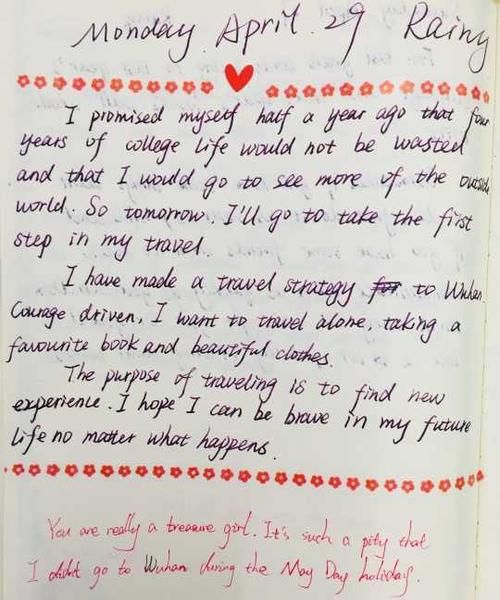 Monday. April. 29 Rainy
I promised myself half a year ago that four
years of college life would not be wasted
and that I would go to see more of the outside
world. So tomorrow. I'll go to take the first
step in my travel.
I have made a travel strategy for to Wuhan.
Courage driven, I want to travel alone, taking a
favourite book and beautiful clothes.
The purpose of traveling is to find new
experience. I hope I can be brave in my future
life no matter what happens.
You are really a treasure girl. It's such a pity that
I didn't go to Wuhan during the May Day holiday.